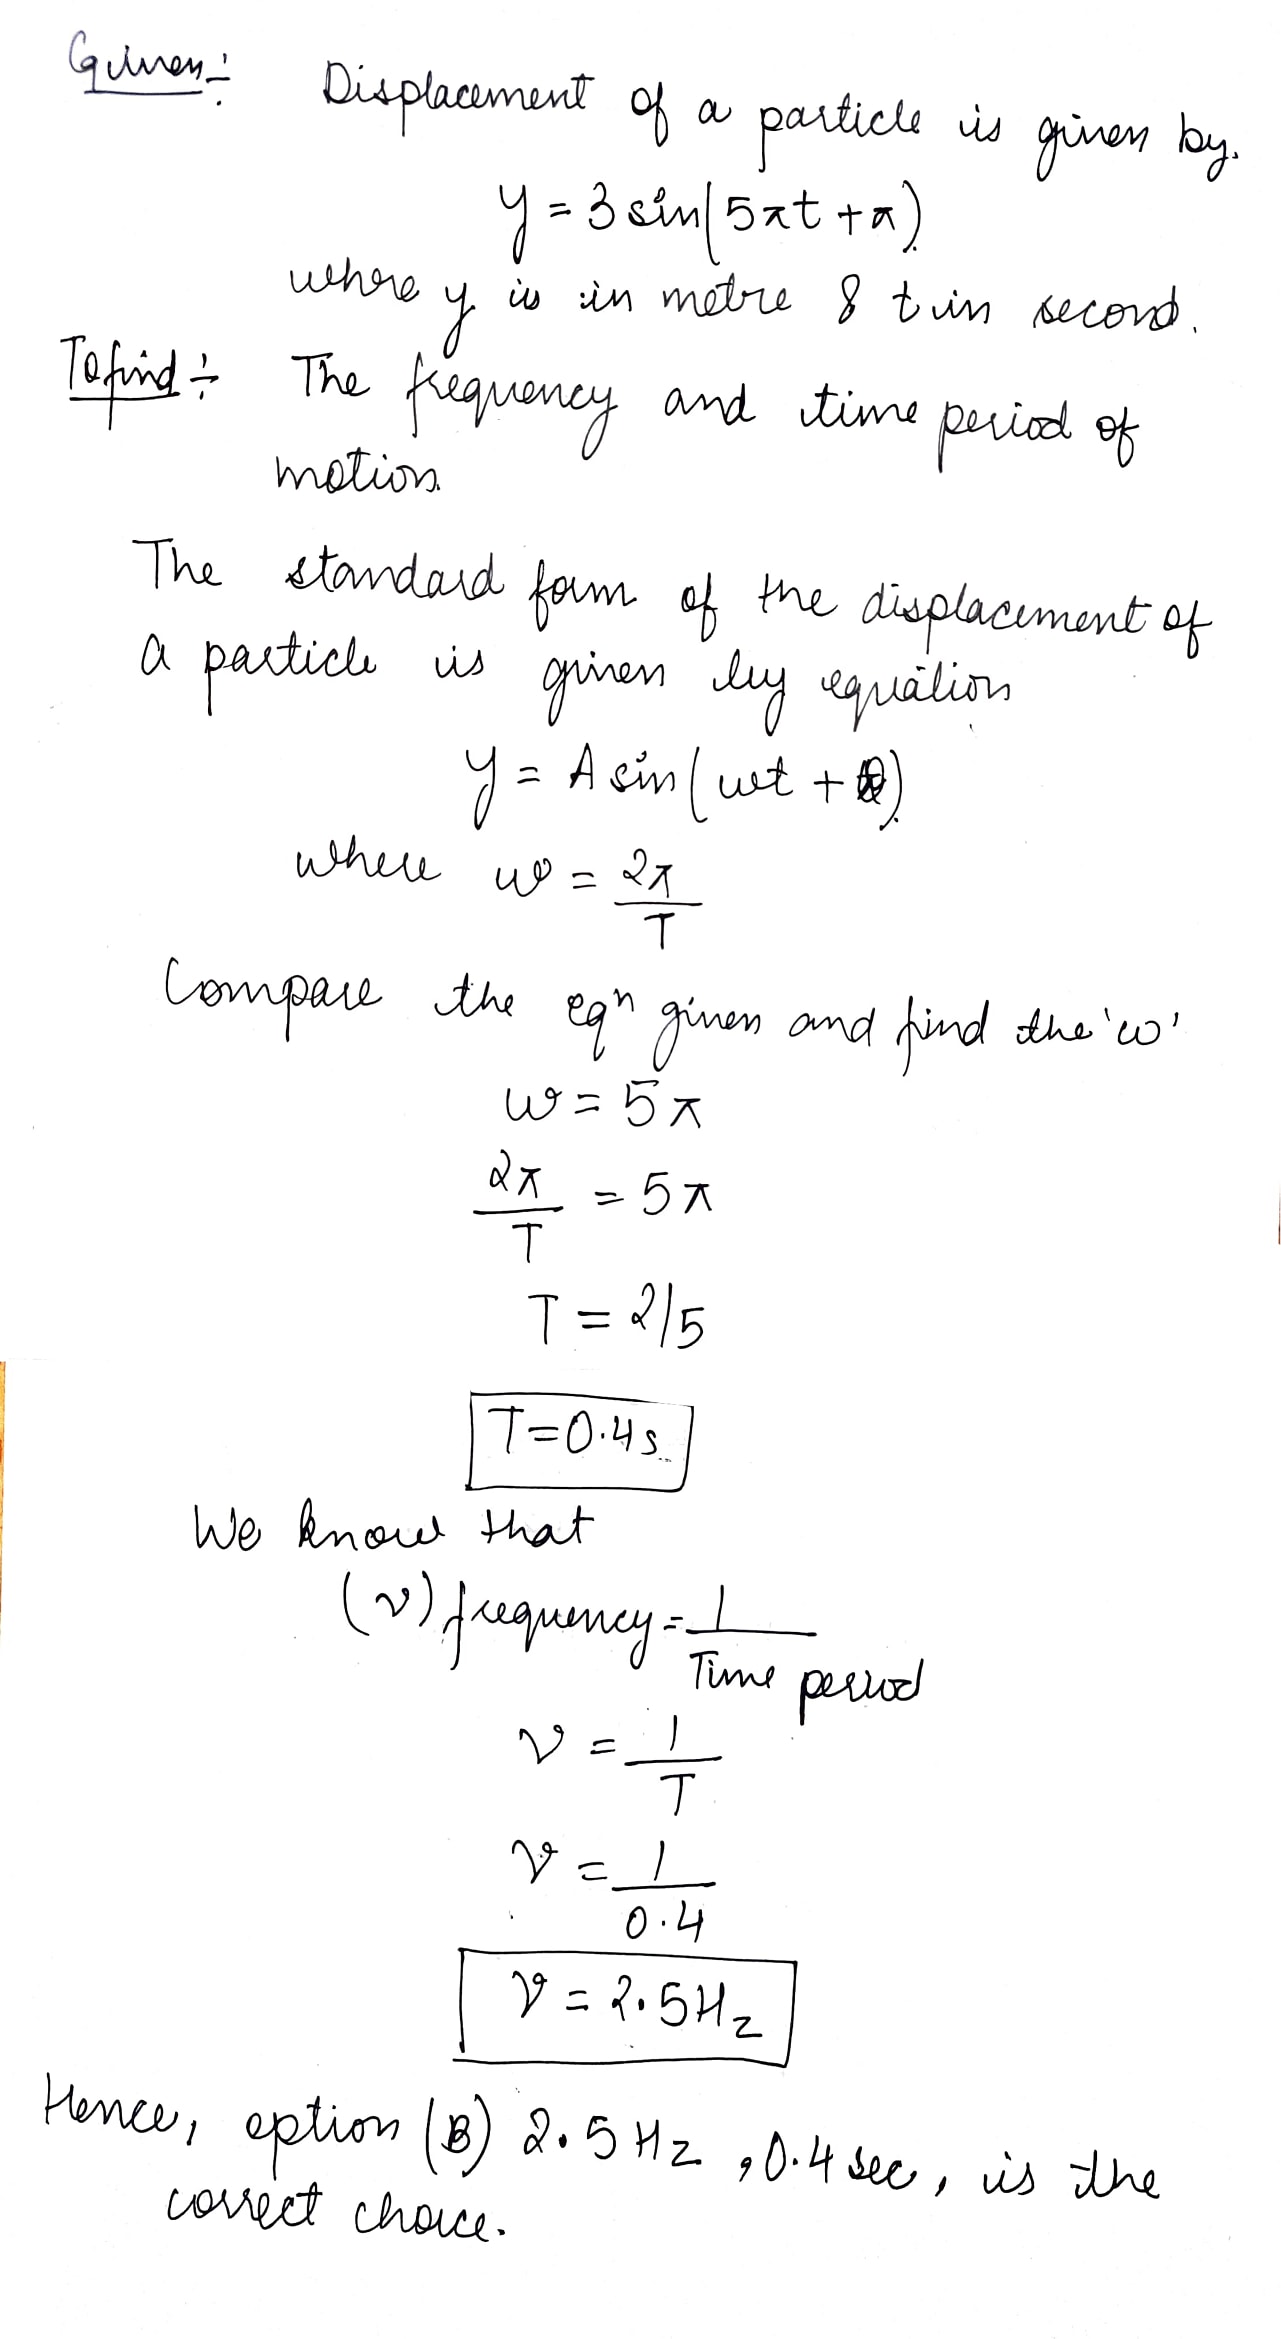 Given:- Displacement of a particle is given by.
y = 3 sin(5πt + π)
where y is in metre & t in second.
To find:- The frequency and time period of
motion.
The standard form of the displacement of
a particle is given by equation
y = A sin(ωt + )
where ω = 2π/T
Compare the eqn given and find the 'ω'
ω = 5π
2π/T = 5π
T = 2/5
T = 0.4s
We know that
(ν) frequency = 1/Time period
ν = 1/T
ν = 1/0.4
ν = 2.5Hz
Hence, option (B) 2.5 Hz, 0.4 sec, is the
correct choice.